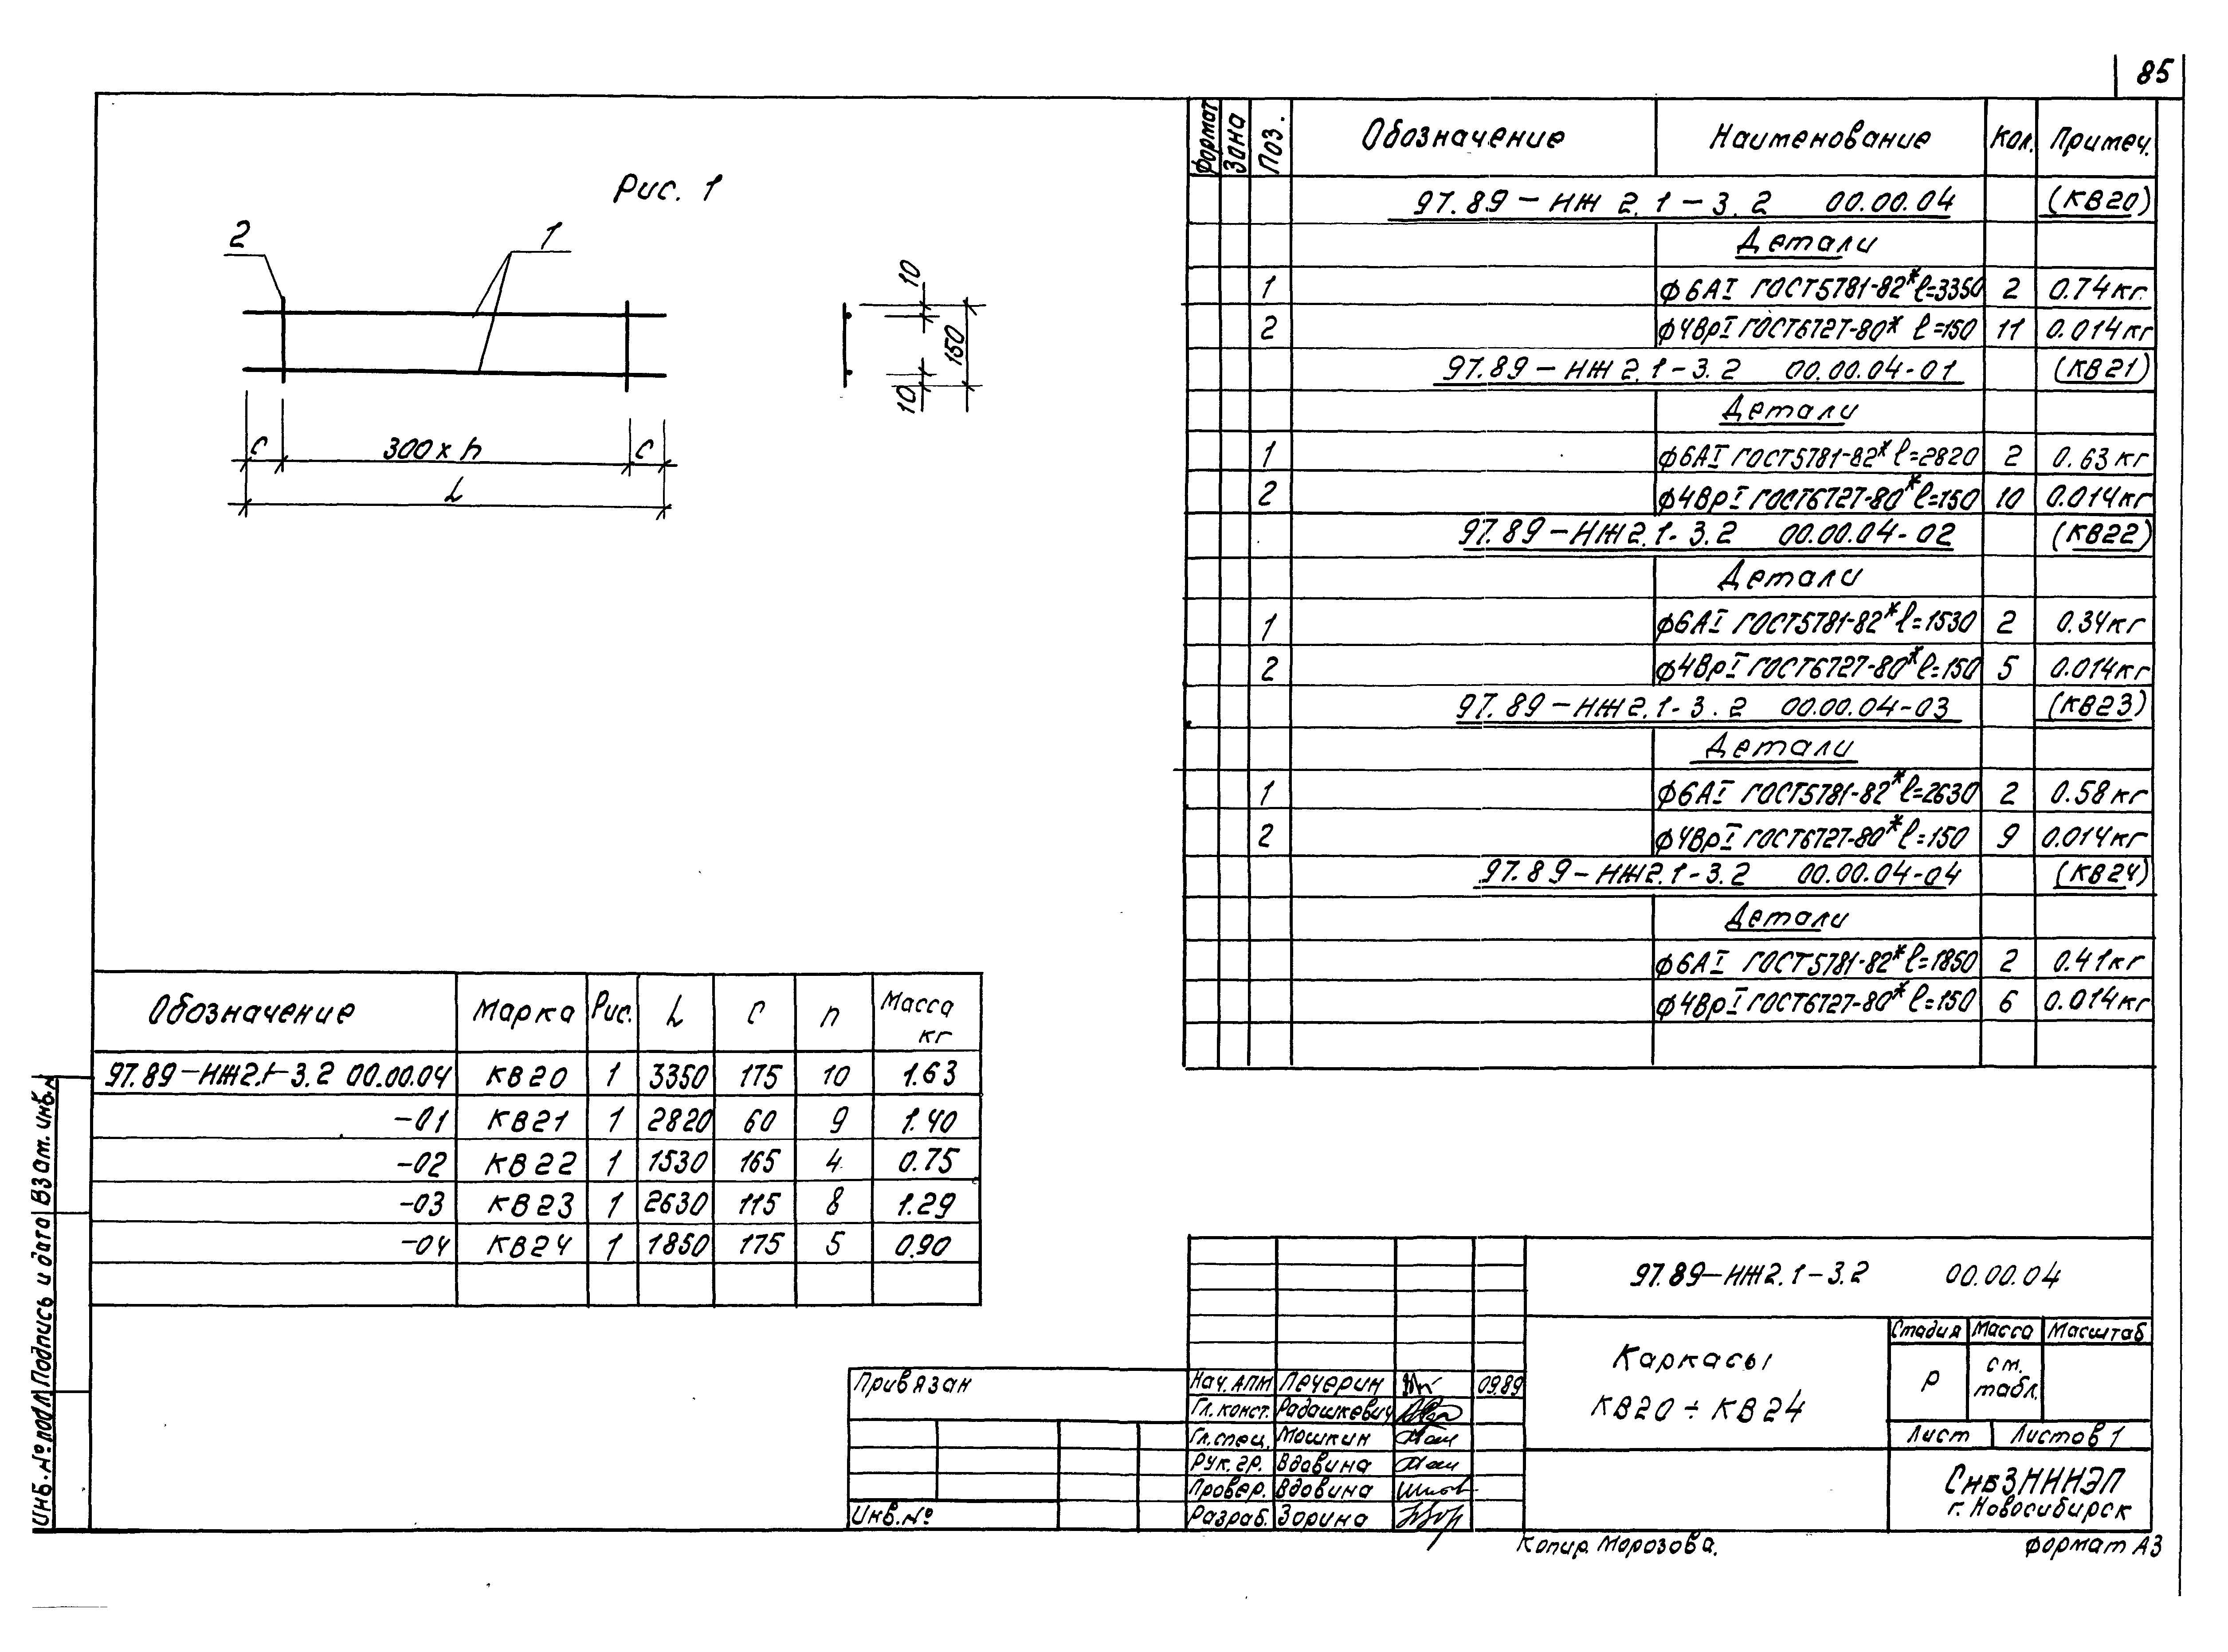 85
Рис. 1
2
1
10
150
10
С
300 х h
С
L
Формат Зона Поз. Обозначение Наименование Кол. Примеч.
97.89-НЖ 2.1-3.2 00.00.04 (КВ20)
Детали
1 ф6АI ГОСТ5781-82* ℓ=3350 2 0.74кг.
2 ф4ВрI ГОСТ6727-80* ℓ=150 11 0.014кг
97.89-НЖ 2.1-3.2 00.00.04-01 (КВ21)
Детали
1 ф6АI ГОСТ5781-82* ℓ=2820 2 0.63кг
2 ф4ВрI ГОСТ6727-80* ℓ=150 10 0.014кг
97.89-НЖ2.1-3.2 00.00.04-02 (КВ22)
Детали
1 ф6АI ГОСТ5781-82* ℓ=1530 2 0.34кг
2 ф4ВрI ГОСТ6727-80* ℓ=150 5 0.014кг
97.89-НЖ2.1-3.2 00.00.04-03 (КВ23)
Детали
1 ф6АI ГОСТ5781-82* ℓ=2630 2 0.58кг
2 ф4ВрI ГОСТ6727-80* ℓ=150 9 0.014кг
97.89-НЖ2.1-3.2 00.00.04-04 (КВ24)
Детали
ф6АI ГОСТ5781-82* ℓ=1850 2 0.41кг
ф4ВрI ГОСТ6727-80* ℓ=150 6 0.014кг
Обозначение Марка Рис. L С n Масса кг
97.89-НЖ2.1-3.2 00.00.04 КВ20 1 3350 175 10 1.63
-01 КВ21 1 2820 60 9 1.40
-02 КВ22 1 1530 165 4 0.75
-03 КВ23 1 2630 115 8 1.29
-04 КВ24 1 1850 175 5 0.90
Инв.№подл. Подпись и дата Взам.инв.№
97.89-НЖ2.1-3.2 00.00.04
Каркасы
КВ20 ÷ КВ24
Стадия Масса Масштаб
Р см. табл.
Лист Листов 1
СибЗНИИЭП
г. Новосибирск
Привязан
Инв.№
Нач.АПМ Печерин 09.89
Гл.конст. Радашкевич
Гл.спец. Мошкин
Рук.гр. Вдовина
Провер. Вдовина
Разраб. Зорина
Копир. Морозова.
Формат А3